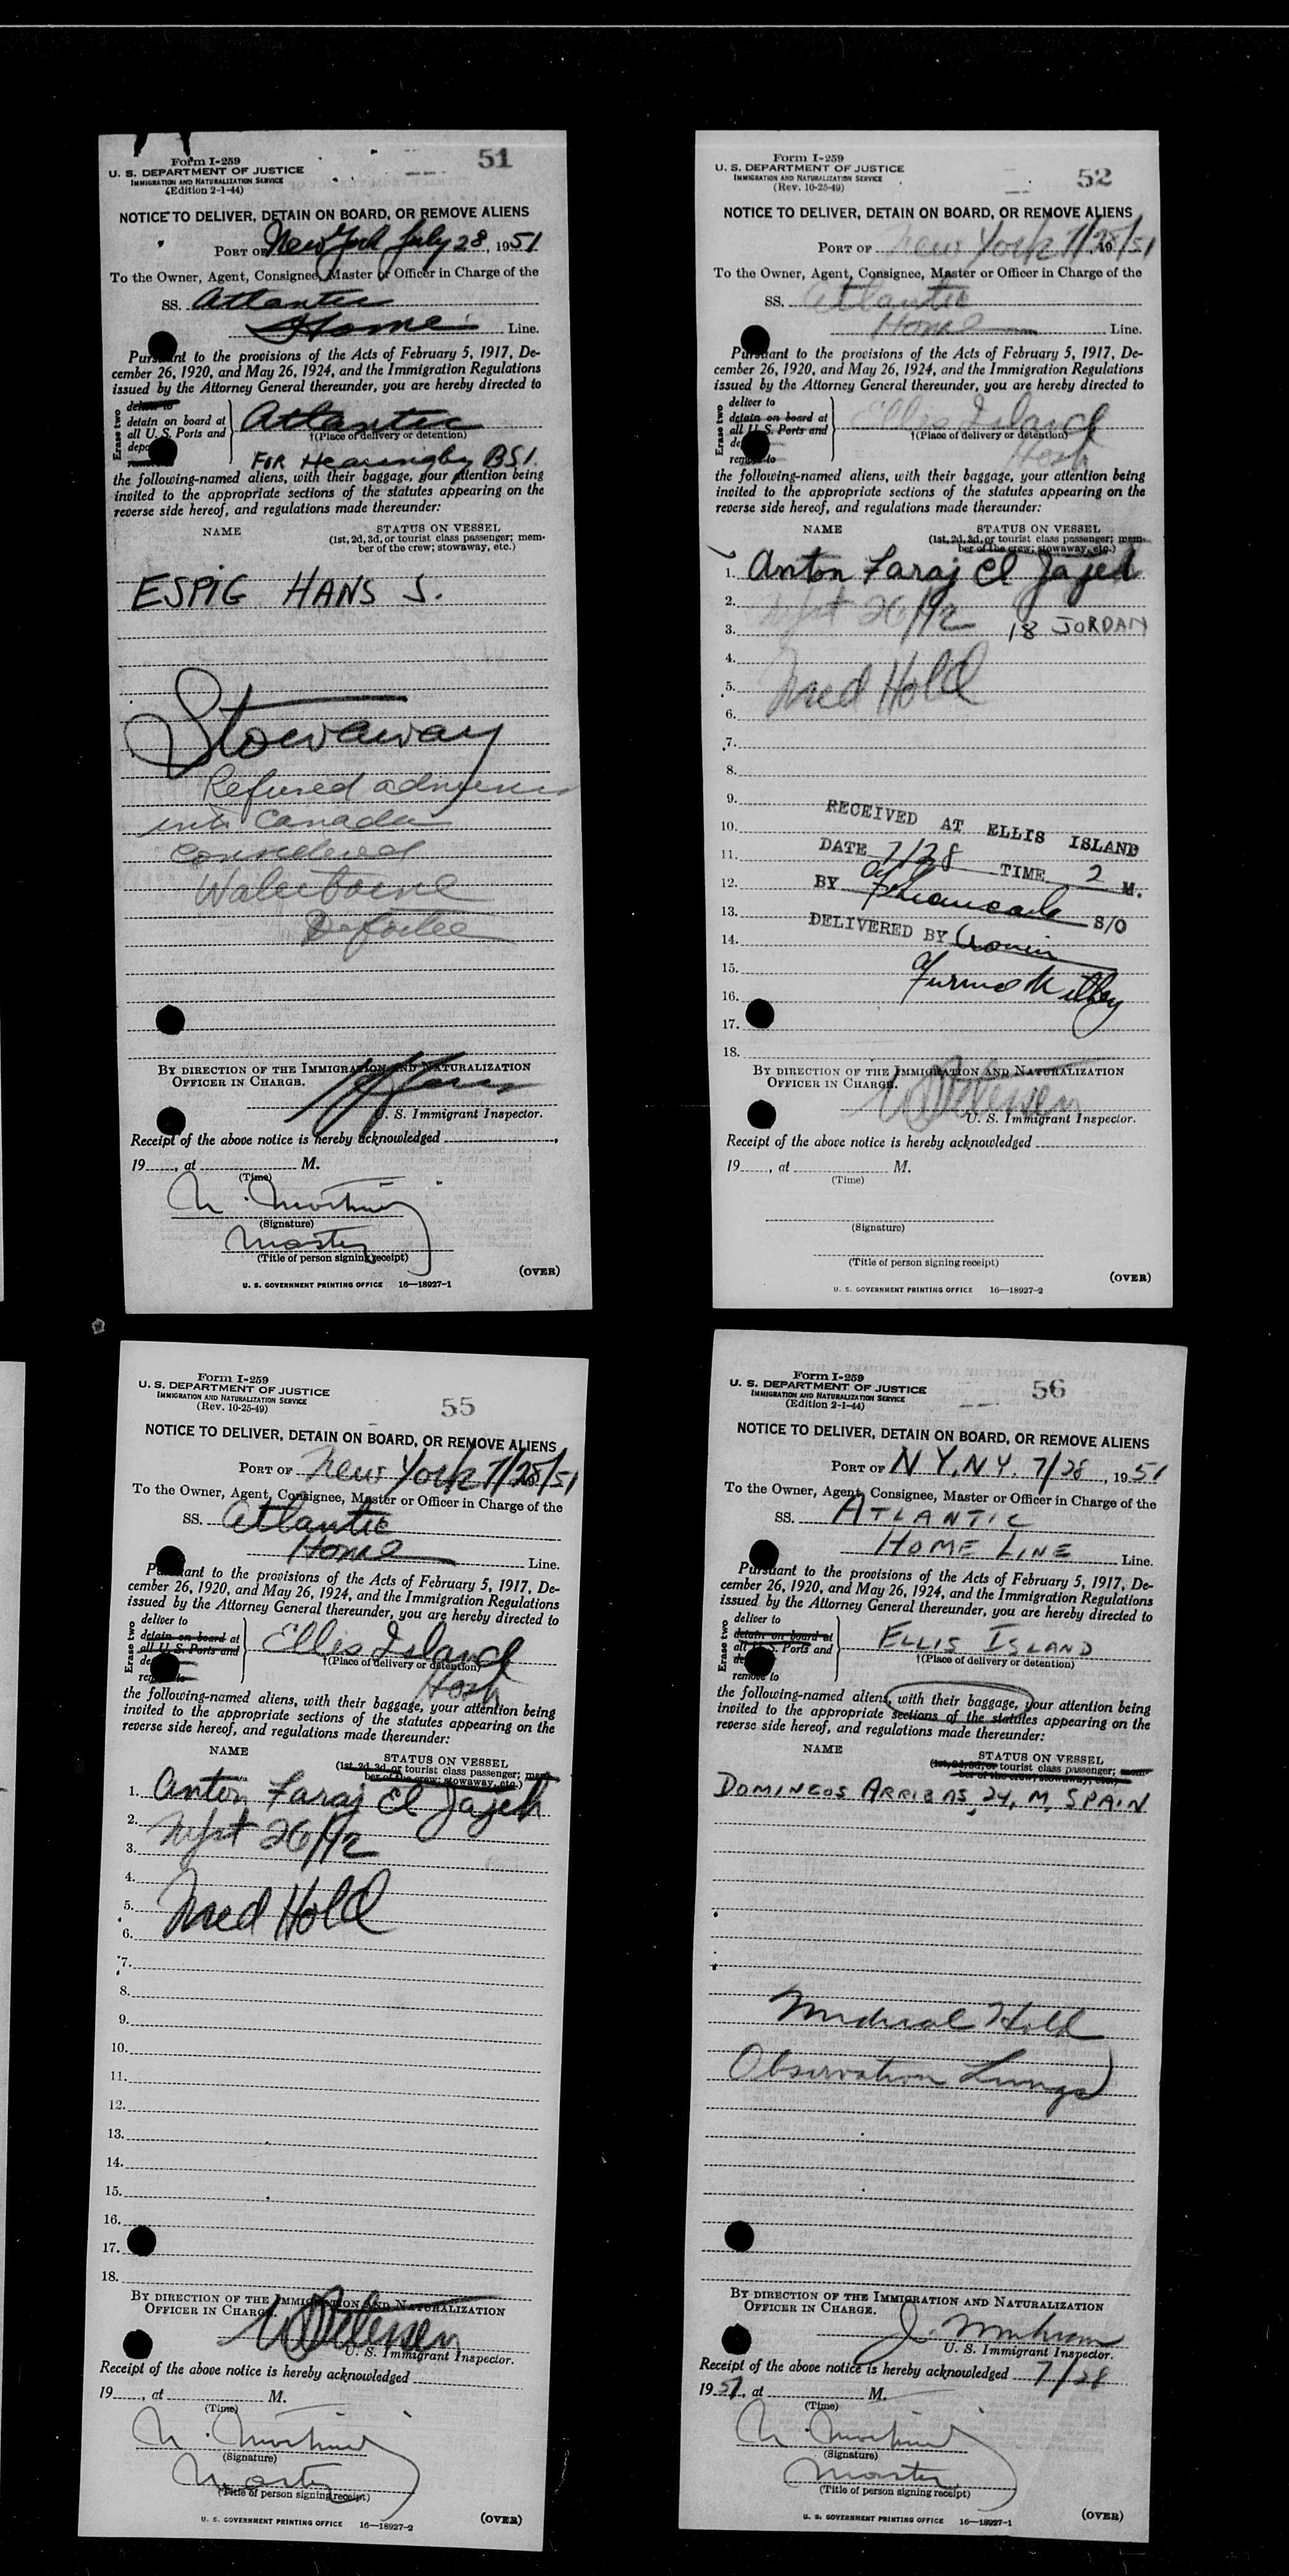 Form I-259
U. S. DEPARTMENT OF JUSTICE
IMMIGRATION AND NATURALIZATION SERVICE
(Edition 2-1-44)
51
NOTICE TO DELIVER, DETAIN ON BOARD, OR REMOVE ALIENS
PORT OF New York July 28, 1951
To the Owner, Agent, Consignee, Master or Officer in Charge of the
SS. Atlantic
Home Line.
Pursuant to the provisions of the Acts of February 5, 1917, De-
cember 26, 1920, and May 26, 1924, and the Immigration Regulations
issued by the Attorney General thereunder, you are hereby directed to
Erase two
deliver to
detain on board at
all U. S. Ports and
Atlantic
†(Place of delivery or detention)
FOR Hearing by BSI.
the following-named aliens, with their baggage, your attention being
invited to the appropriate sections of the statutes appearing on the
reverse side hereof, and regulations made thereunder:
NAME
STATUS ON VESSEL
(1st, 2d, 3d, or tourist class passenger; mem-
ber of the crew; stowaway, etc.)
ESPIG HANS J.
Stowaway
Refused
into Canada
considered
BY DIRECTION OF THE IMMIGRATION AND NATURALIZATION
OFFICER IN CHARGE.
U. S. Immigrant Inspector.
Receipt of the above notice is hereby acknowledged
19 , at M.
(Time)
(Signature)
Master
(Title of person signing receipt)
(OVER)
U. S. GOVERNMENT PRINTING OFFICE 16—18927-1
Form I-259
U. S. DEPARTMENT OF JUSTICE
IMMIGRATION AND NATURALIZATION SERVICE
(Rev. 10-25-49)
52
NOTICE TO DELIVER, DETAIN ON BOARD, OR REMOVE ALIENS
PORT OF New York 7/28/51
To the Owner, Agent, Consignee, Master or Officer in Charge of the
SS. Atlantic
Home Line.
Pursuant to the provisions of the Acts of February 5, 1917, De-
cember 26, 1920, and May 26, 1924, and the Immigration Regulations
issued by the Attorney General thereunder, you are hereby directed to
Erase two
deliver to
detain on board at
all U. S. Ports and
remove to
Ellis Island
†(Place of delivery or detention)
Hosp
the following-named aliens, with their baggage, your attention being
invited to the appropriate sections of the statutes appearing on the
reverse side hereof, and regulations made thereunder:
NAME
STATUS ON VESSEL
(1st, 2d, 3d, or tourist class passenger; mem-
ber of the crew; stowaway, etc.)
1. Anton Faraj El Jajeh
2.
3. 26/12 18 JORDAN
4.
5. Med Hold
6.
7.
8.
9.
10. RECEIVED AT ELLIS ISLAND
11. DATE 7/28 TIME 2 M.
12. BY
13. S/O
14. DELIVERED BY
15.
16.
17.
18.
BY DIRECTION OF THE IMMIGRATION AND NATURALIZATION
OFFICER IN CHARGE.
U. S. Immigrant Inspector.
Receipt of the above notice is hereby acknowledged
19 , at M.
(Time)
(Signature)
(Title of person signing receipt)
(OVER)
U. S. GOVERNMENT PRINTING OFFICE 16—18927-2
Form I-259
U. S. DEPARTMENT OF JUSTICE
IMMIGRATION AND NATURALIZATION SERVICE
(Rev. 10-25-49)
55
NOTICE TO DELIVER, DETAIN ON BOARD, OR REMOVE ALIENS
PORT OF New York 7/28/51
To the Owner, Agent, Consignee, Master or Officer in Charge of the
SS. Atlantic
Home Line.
Pursuant to the provisions of the Acts of February 5, 1917, De-
cember 26, 1920, and May 26, 1924, and the Immigration Regulations
issued by the Attorney General thereunder, you are hereby directed to
Erase two
deliver to
detain on board at
all U. S. Ports and
Ellis Island
†(Place of delivery or detention)
Hosp
the following-named aliens, with their baggage, your attention being
invited to the appropriate sections of the statutes appearing on the
reverse side hereof, and regulations made thereunder:
NAME
STATUS ON VESSEL
(1st, 2d, 3d, or tourist class passenger; mem-
ber of the crew; stowaway, etc.)
1. Anton Faraj El Jajeh
2.
3. 26/12
4.
5. Med Hold
6.
7.
8.
9.
10.
11.
12.
13.
14.
15.
16.
17.
18.
BY DIRECTION OF THE IMMIGRATION AND NATURALIZATION
OFFICER IN CHARGE.
U. S. Immigrant Inspector.
Receipt of the above notice is hereby acknowledged
19 , at M.
(Time)
(Signature)
Master
(Title of person signing receipt)
(OVER)
U. S. GOVERNMENT PRINTING OFFICE 16—18927-2
Form I-259
U. S. DEPARTMENT OF JUSTICE
IMMIGRATION AND NATURALIZATION SERVICE
(Edition 2-1-44)
56
NOTICE TO DELIVER, DETAIN ON BOARD, OR REMOVE ALIENS
PORT OF N Y, N Y. 7/28, 1951
To the Owner, Agent, Consignee, Master or Officer in Charge of the
SS. ATLANTIC
HOME LINE Line.
Pursuant to the provisions of the Acts of February 5, 1917, De-
cember 26, 1920, and May 26, 1924, and the Immigration Regulations
issued by the Attorney General thereunder, you are hereby directed to
Erase two
deliver to
detain on board at
all U. S. Ports and
remove to
ELLIS ISLAND
†(Place of delivery or detention)
the following-named aliens, with their baggage, your attention being
invited to the appropriate sections of the statutes appearing on the
reverse side hereof, and regulations made thereunder:
NAME
STATUS ON VESSEL
(1st, 2d, 3d, or tourist class passenger; mem-
ber of the crew; stowaway, etc.)
DOMINGOS ARRIBAS, 24, M, SPAIN
Medical Hold
Observation Lungs
BY DIRECTION OF THE IMMIGRATION AND NATURALIZATION
OFFICER IN CHARGE.
U. S. Immigrant Inspector.
Receipt of the above notice is hereby acknowledged 7/28
1951, at M.
(Time)
(Signature)
Master
(Title of person signing receipt)
(OVER)
U. S. GOVERNMENT PRINTING OFFICE 16—18927-1